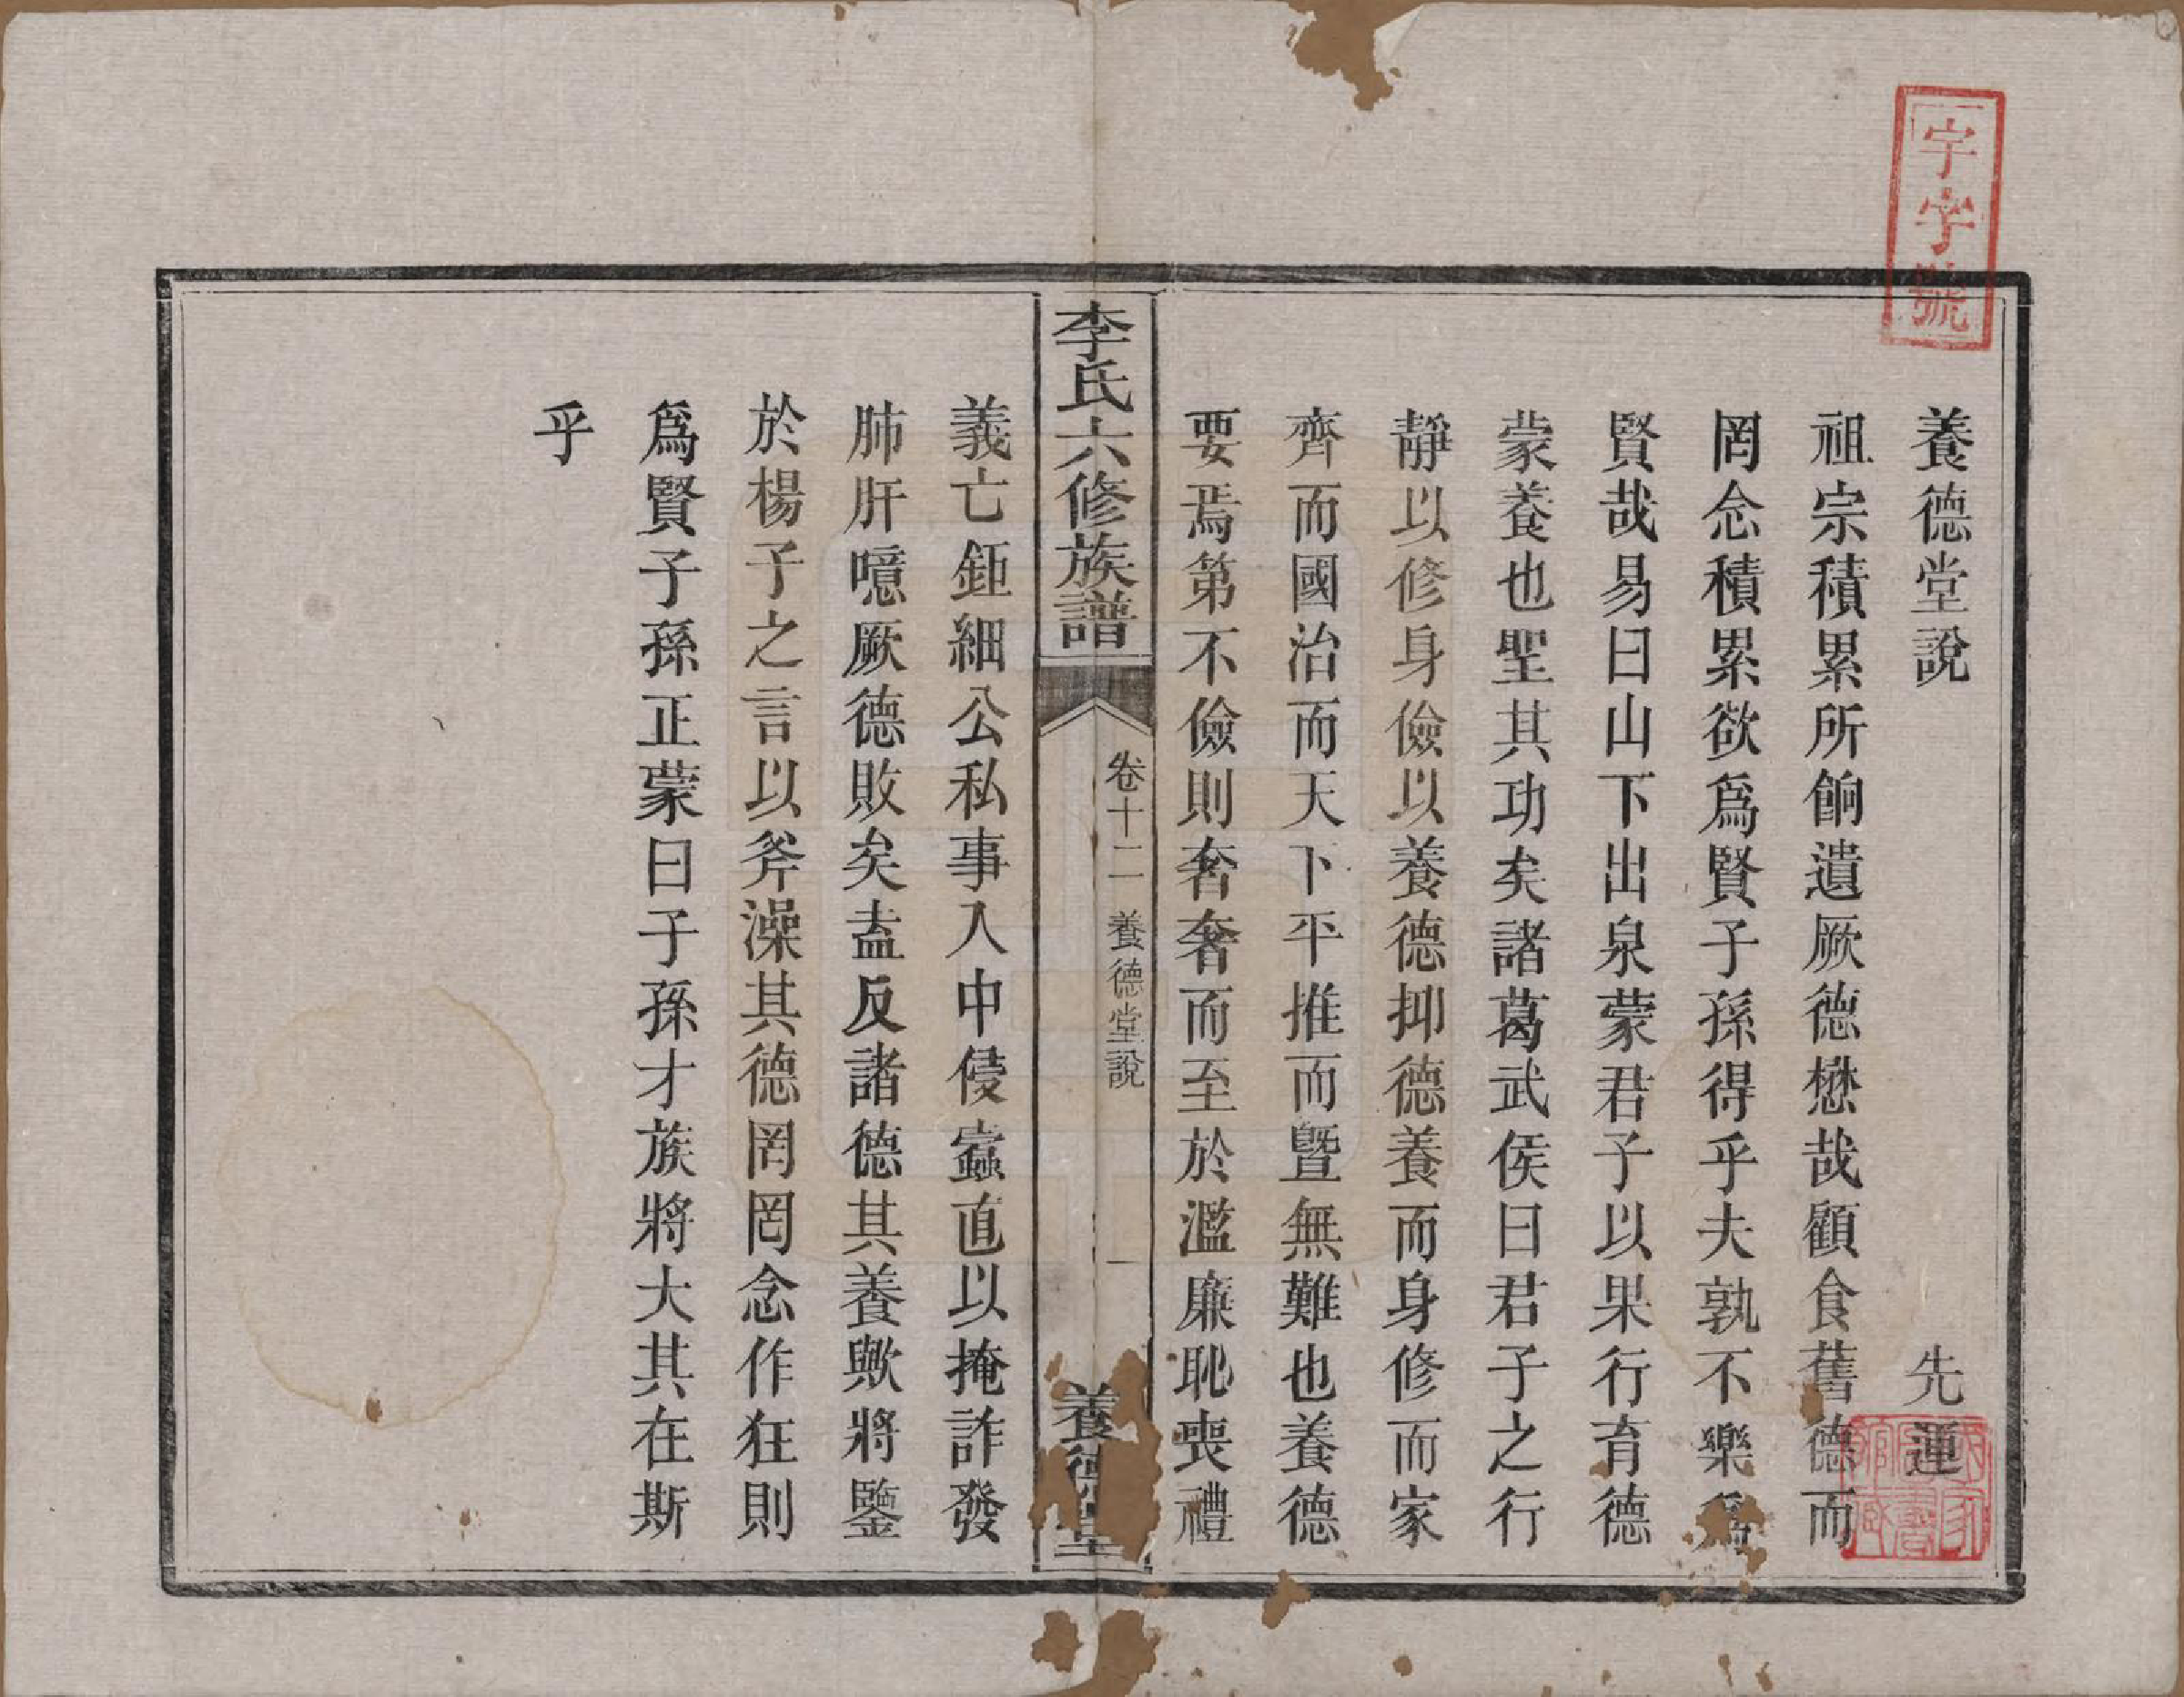 宇字號
養德堂說　先運
祖宗積累所餉遺厥德懋哉顧食舊德而
罔念積累欲爲賢子孫得乎夫孰不樂爲
賢哉易曰山下出泉蒙君子以果行育德
蒙養也聖其功矣諸葛武侯曰君子之行
靜以修身儉以養德抑德養而身修而家
齊而國治而天下平推而曁無難也養德
要焉第不儉則奢奢而至於濫廉恥喪禮
李氏六修族譜
卷十二　養德堂說　一
養德堂
義亡鉅細公私事入中侵蠧直以掩詐發
肺肝噫厥德敗矣盍反諸德其養歟將鑒
於楊子之言以斧澡其德罔罔念作狂則
爲賢子孫正蒙曰子孫才族將大其在斯
乎